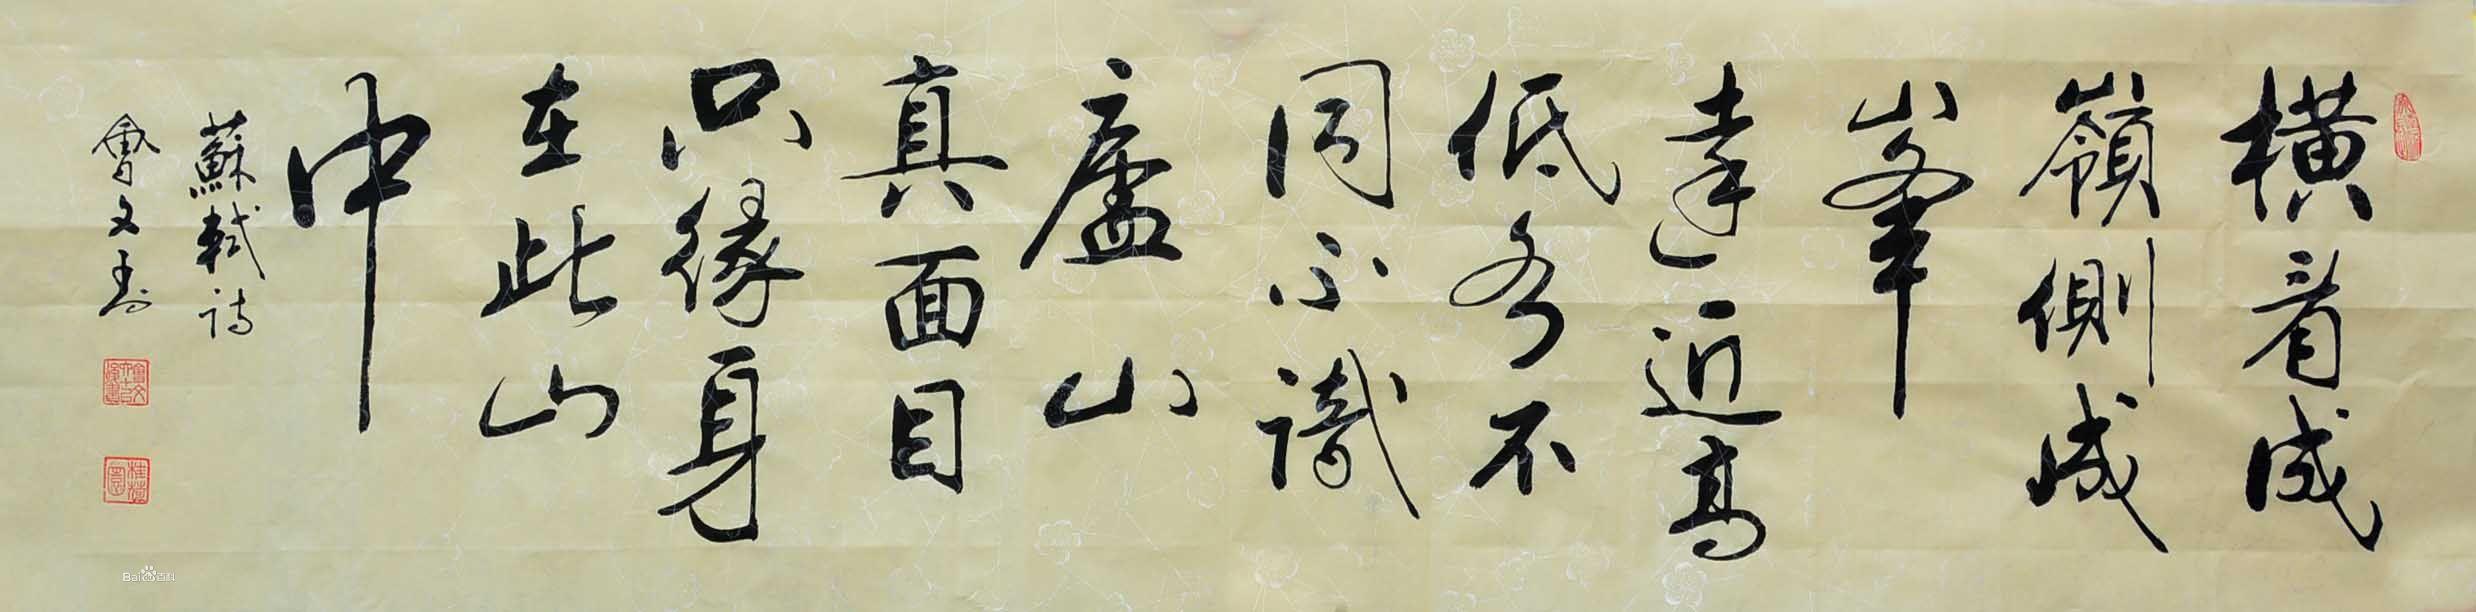 橫看成
嶺側成
峯
遠近高
低各不
同不識
廬山
真面目
只緣身
在此山
中
蘇軾詩
文書
Bai百科